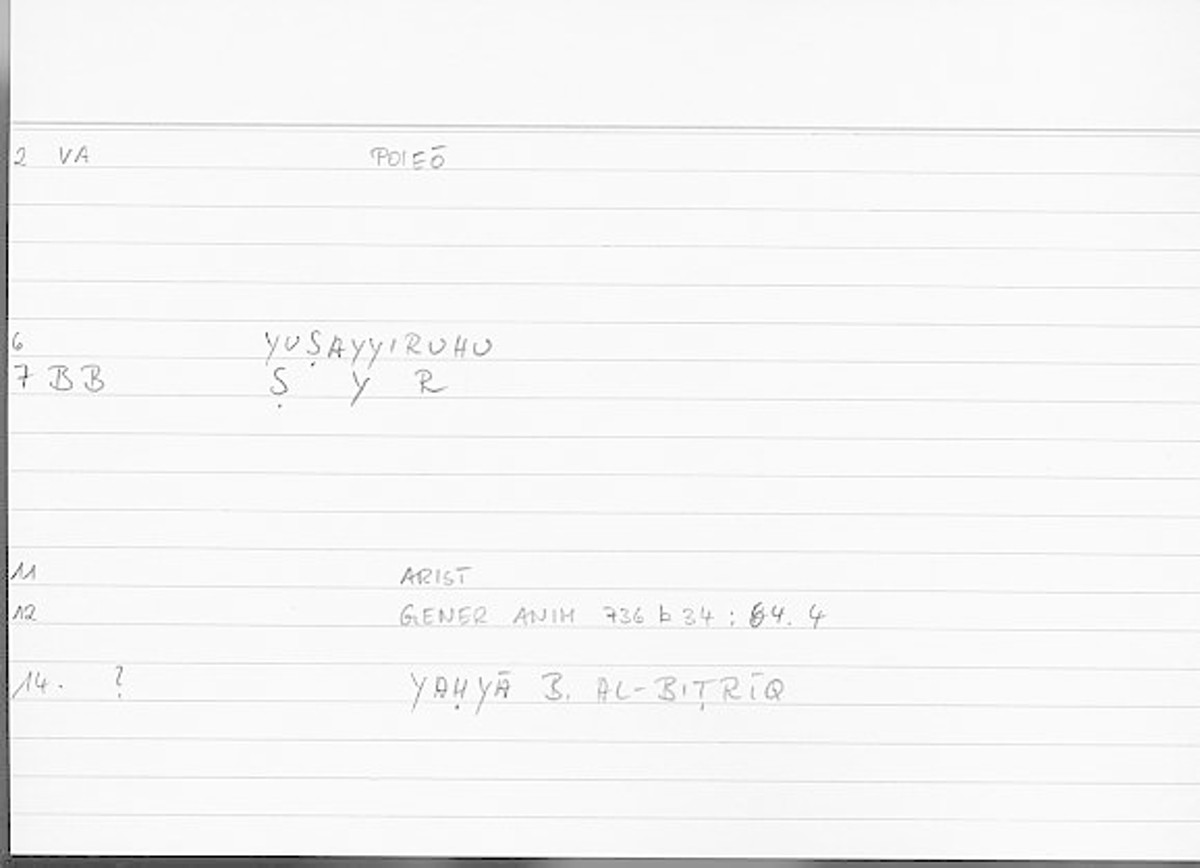 2 VA POIEŌ
6 YUṢAYYIRUHU
7 BB Ṣ Y R
11 ARIST
12 GENER ANIM 736 b 34 : 64. 4
14. ? YAḤYĀ B. AL-BIṬRĪQ